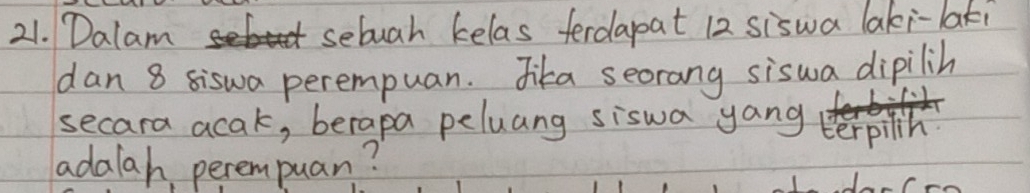 21. Dalam sebuah kelas terdapat 12 siswa laki-laki
dan 8 siswa perempuan. Jika seorang siswa dipilih
secara acak, berapa peluang siswa yang terpilih.
adalah perempuan?